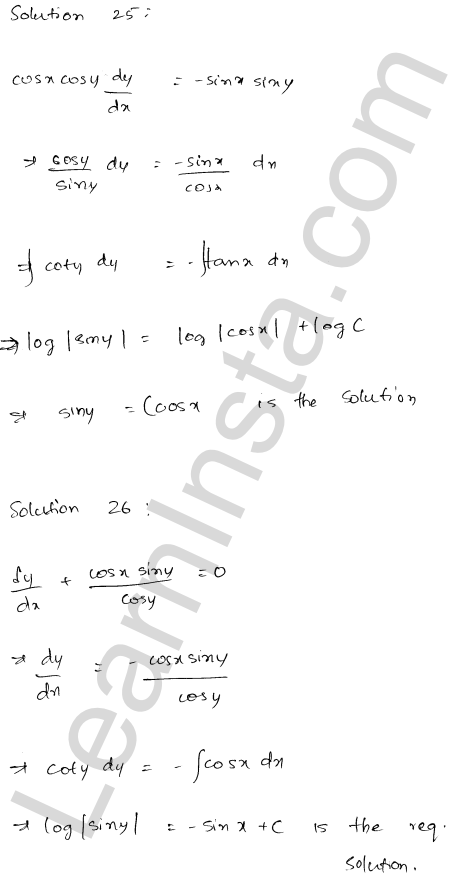 Solution 25:
cosx cosy dy/dx = -sinx siny
⇒ cosy/siny dy = -sinx/cosx dx
⇒ ∫ coty dy = -∫tanx dx
⇒ log |siny| = log |cosx| + log C
⇒ siny = Ccosx is the solution
Solution 26:
dy/dx + cosx siny/cosy = 0
⇒ dy/dx = - cosx siny/cosy
⇒ coty dy = - ∫cosx dx
⇒ log |siny| = -sinx + C is the req.
solution.
LearnInsta.com